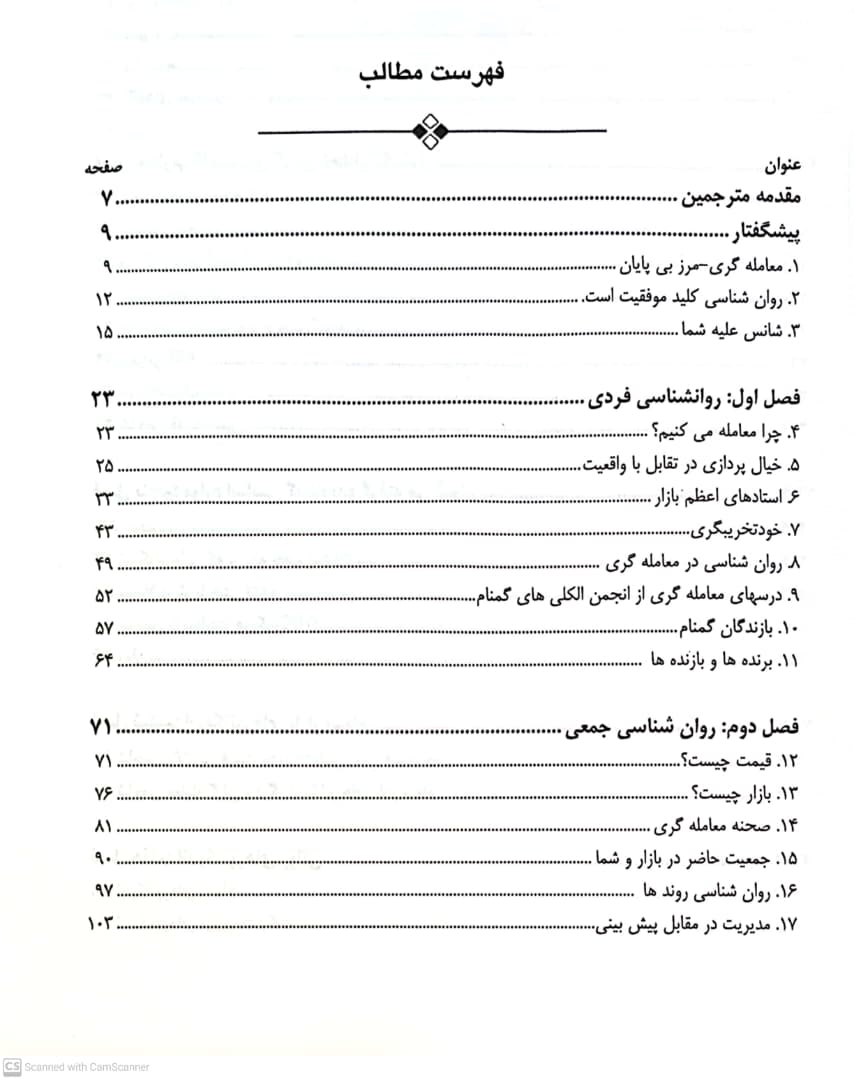 فهرست مطالب
عنوان صفحه
مقدمه مترجمین ۷
پیشگفتار ۹
۱. معامله گری-مرز بی پایان ۹
۲. روان شناسی کلید موفقیت است. ۱۲
۳. شانس علیه شما ۱۵
فصل اول: روانشناسی فردی ۲۳
۴. چرا معامله می کنیم؟ ۲۳
۵. خیال پردازی در تقابل با واقعیت ۲۵
۶. استادهای اعظم بازار ۳۳
۷. خودتخریبگری ۴۳
۸. روان شناسی در معامله گری ۴۹
۹. درسهای معامله گری از انجمن الکلی های گمنام ۵۲
۱۰. بازندگان گمنام ۵۷
۱۱. برنده ها و بازنده ها ۶۴
فصل دوم: روان شناسی جمعی ۷۱
۱۲. قیمت چیست؟ ۷۱
۱۳. بازار چیست؟ ۷۶
۱۴. صحنه معامله گری ۸۱
۱۵. جمعیت حاضر در بازار و شما ۹۰
۱۶. روان شناسی روند ها ۹۷
۱۷. مدیریت در مقابل پیش بینی ۱۰۳
CS Scanned with CamScanner